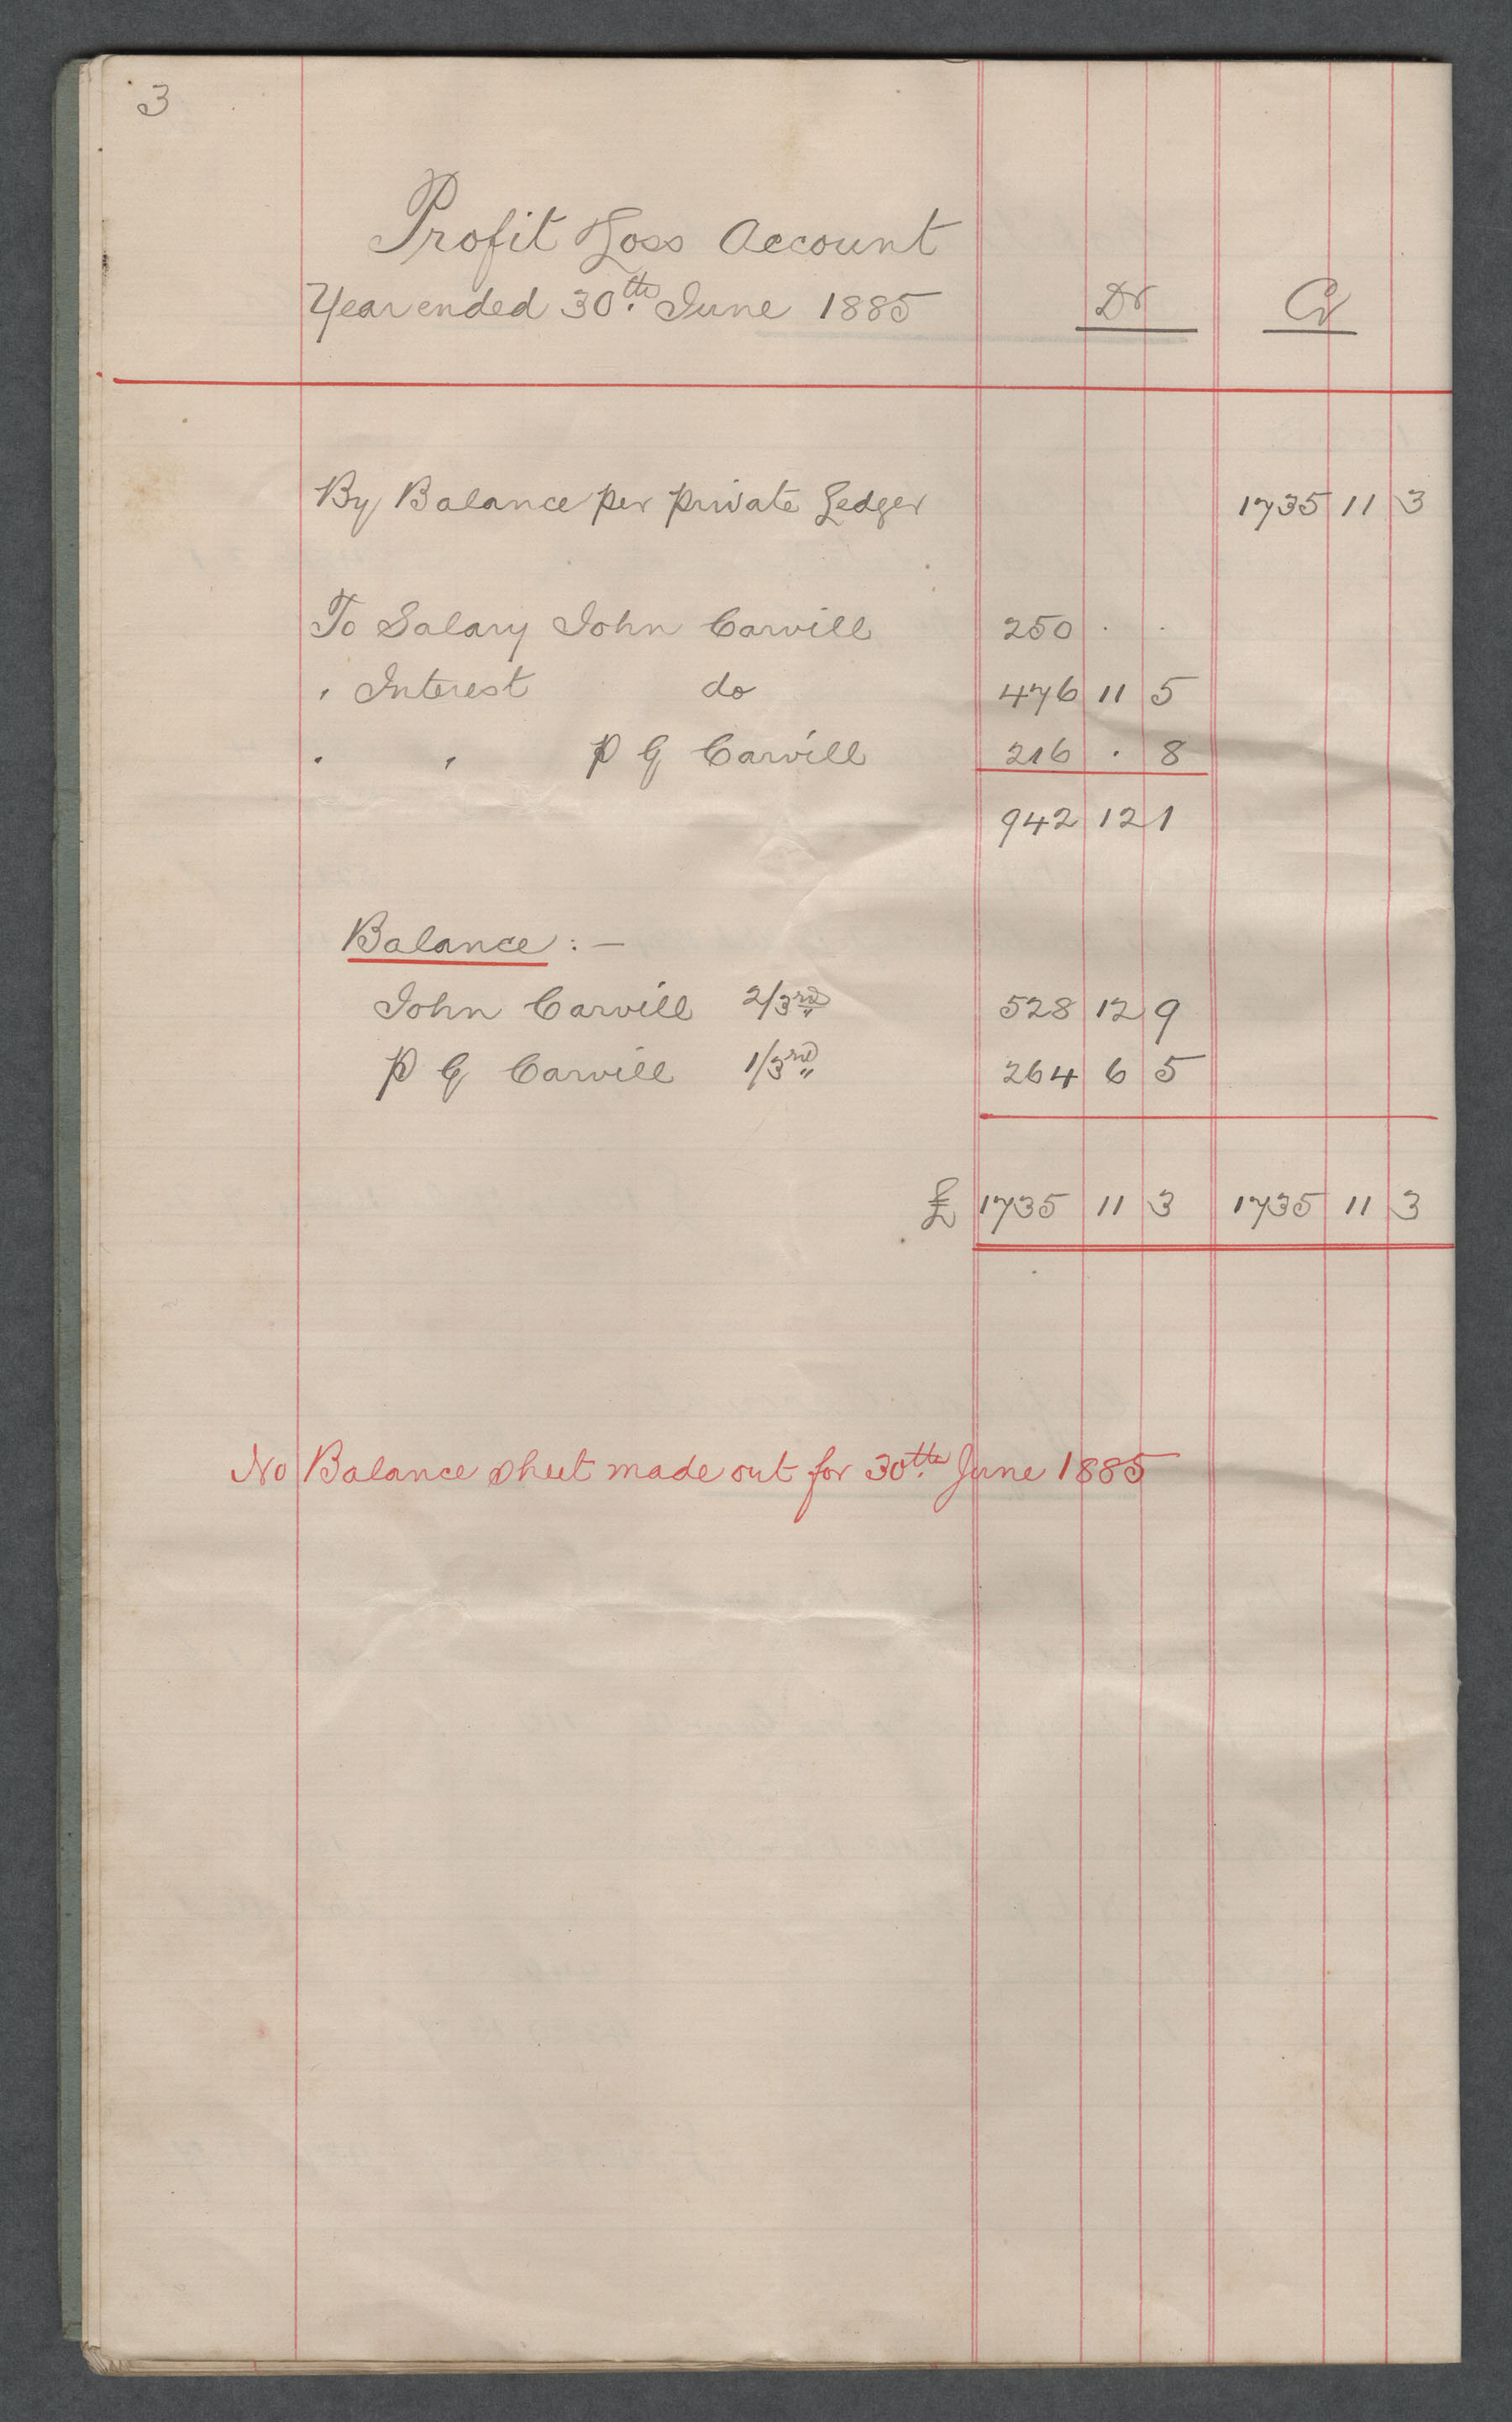 3
Profit Loss Account
Year ended 30th June 1885 Dr Cr
By Balance per private Ledger 1735 11 3
To Salary John Carvill 250 . .
" Interest do 476 11 5
" " P G Carvill 216 . 8
942 12 1
Balance :—
John Carvill 2/3rd 528 12 9
P G Carvill 1/3rd 264 6 5
£ 1735 11 3 1735 11 3
No Balance sheet made out for 30th June 1885